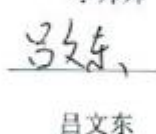 吕文东
吕文东